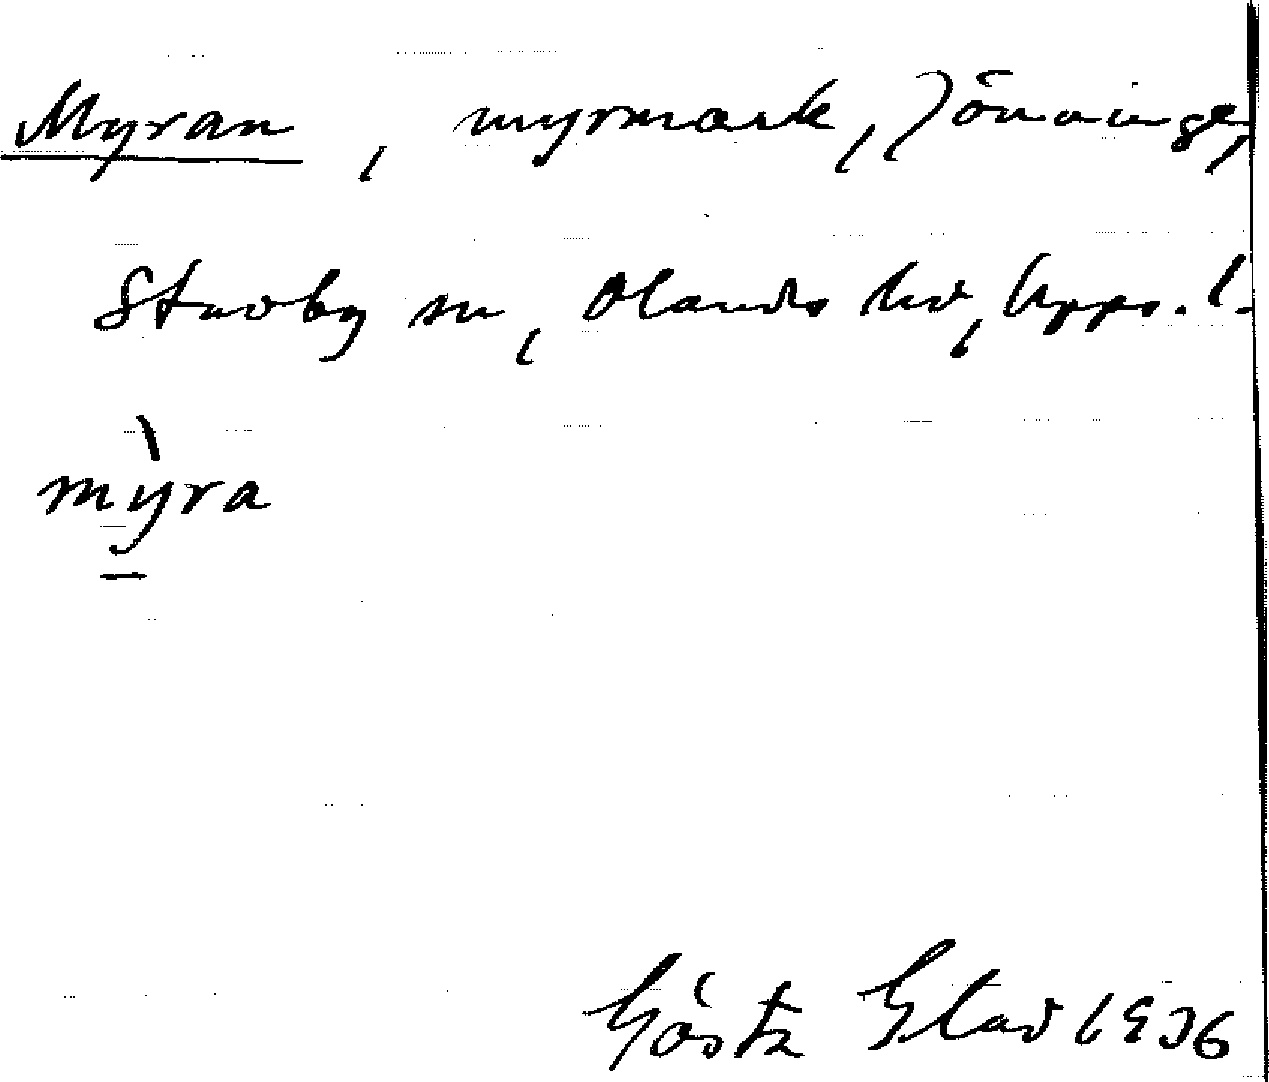 Myran, myrmark, Jönninge,
Stavby sn, Olands hd, Upps. l.
mỳ̱ra
Gösta Glad 1936